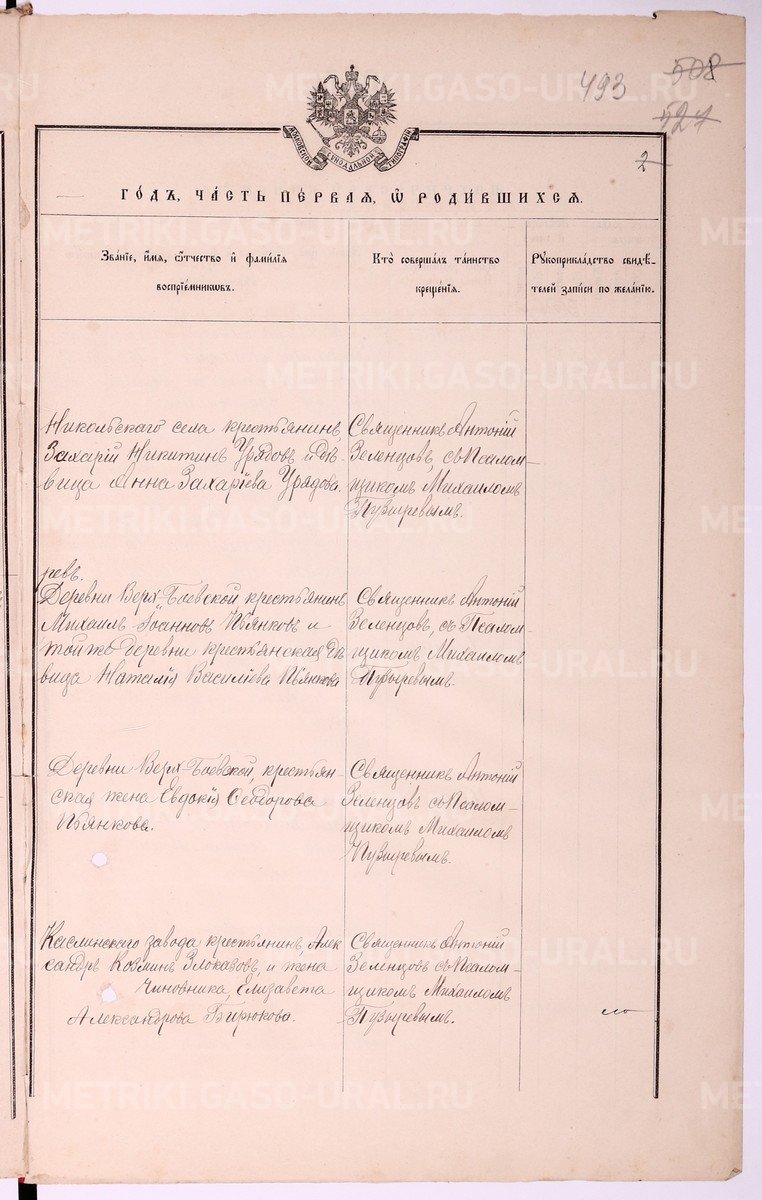 493
508
527
МОСКОВСКОЙ СѴНОДАЛЬНОЙ ТИПОГРАФІИ
2
ГОДЪ, ЧАСТЬ ПЕРВАЯ, Ѿ РОДИВШИХСЯ.
Званіе, имя, отчество и фамилія
воспріемниковъ.
Кто совершалъ таинство
крещенія.
Рукоприкладство свидѣ-
телей записи по желанію.
Никольскаго села крестьянинъ
Захарій Никитинъ Урядовъ и дѣ-
вица Анна Захаріева Урядова.
Священникъ Антоній
Зеленцовъ, съ Псалом-
щикомъ Михаиломъ
Пузыревымъ.
ревъ.
Деревни Верх-Боевской крестьянинъ
Михаилъ Іоанновъ Пьянковъ и
той же деревни крестьянская дѣ
вица Наталія Василіева Пьянкова
Священникъ Антоній
Зеленцовъ, съ Псалом-
щикомъ Михаиломъ
Пузыревымъ.
Деревни Верх-Боевской, крестьян-
ская жена Евдокія Ѳеодорова
Пьянкова.
Священникъ Антоній
Зеленцовъ съ Псалом-
щикомъ Михаиломъ
Пузыревымъ.
Каслинскаго завода крестьянинъ, Алек
сандръ Козминъ Злоказовъ, и жена
Чиновника, Елизавета
Александрова Бирюкова.
Священникъ Антоній
Зеленцовъ съ Псалом-
щикомъ Михаиломъ
Пузыревымъ.
METRIKI.GASO-URAL.RU